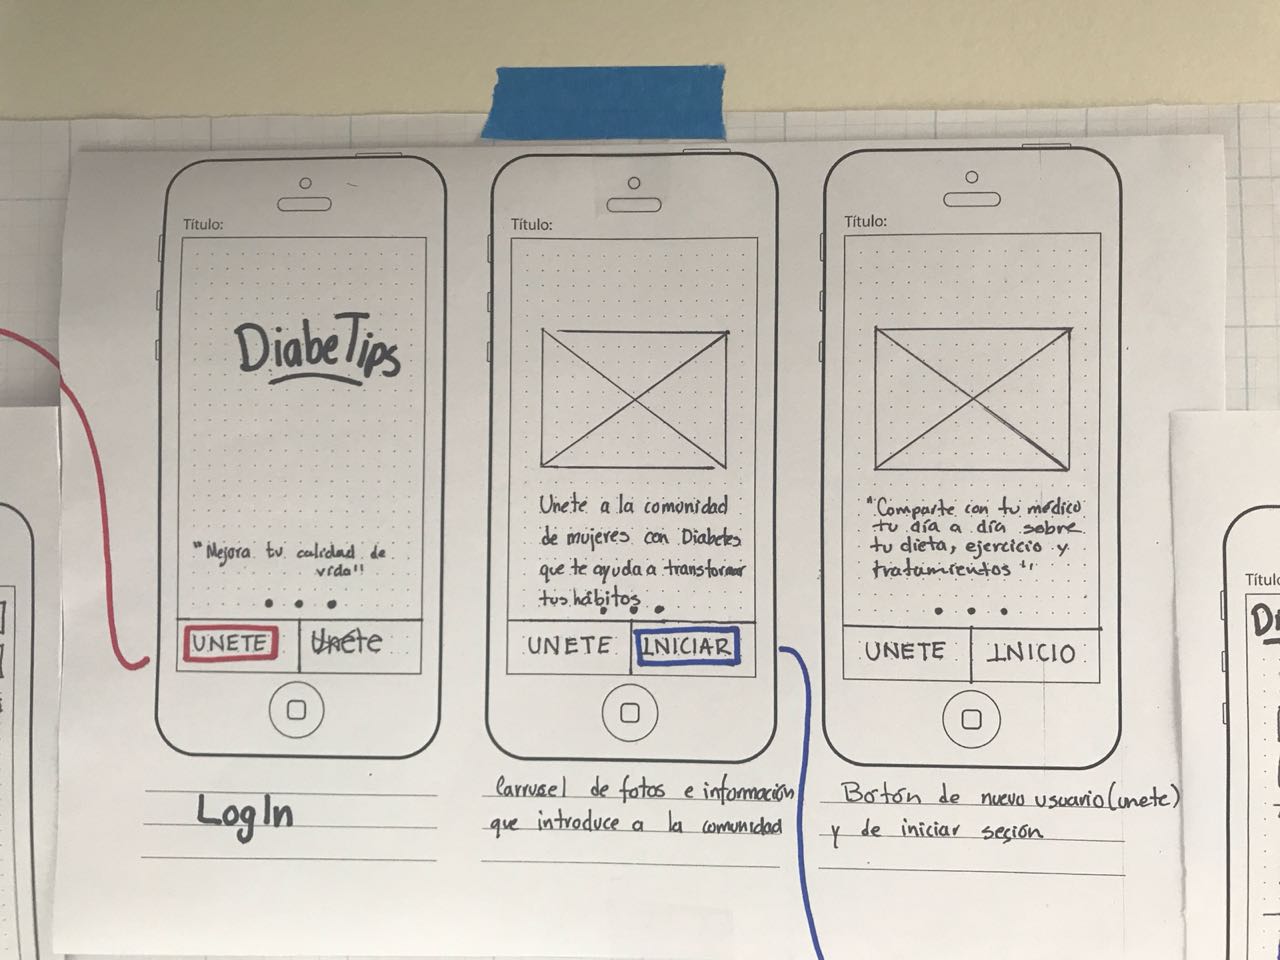 Título:
DiabeTips
"Mejora tu calidad de
vida"
UNETE
Unete
LogIn
Título:
Unete a la comunidad
de mujeres con Diabetes
que te ayuda a transformar
tus hábitos
UNETE
INICIAR
Carrusel de fotos e información
que introduce a la comunidad
Título:
"Comparte con tu médico
tu día a día sobre
tu dieta, ejercicio y
tratamientos"
UNETE
INICIO
Botón de nuevo usuario (unete)
y de iniciar sesión